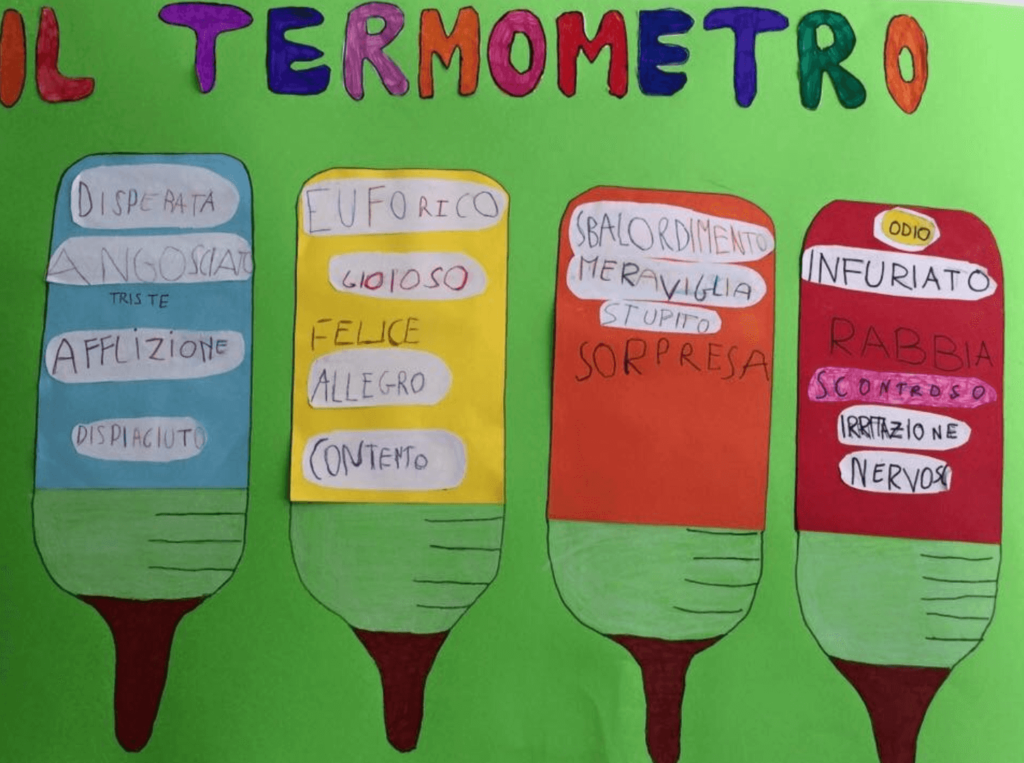 IL TERMOMETRO
DISPERATA
ANGOSCIATO
TRISTE
AFFLIZIONE
DISPIACIUTO
EUFORICO
GIOIOSO
FELICE
ALLEGRO
CONTENTO
SBALORDIMENTO
MERAVIGLIA
STUPITO
SORPRESA
ODIO
INFURIATO
RABBIA
SCONTROSO
IRRITAZIONE
NERVOSO